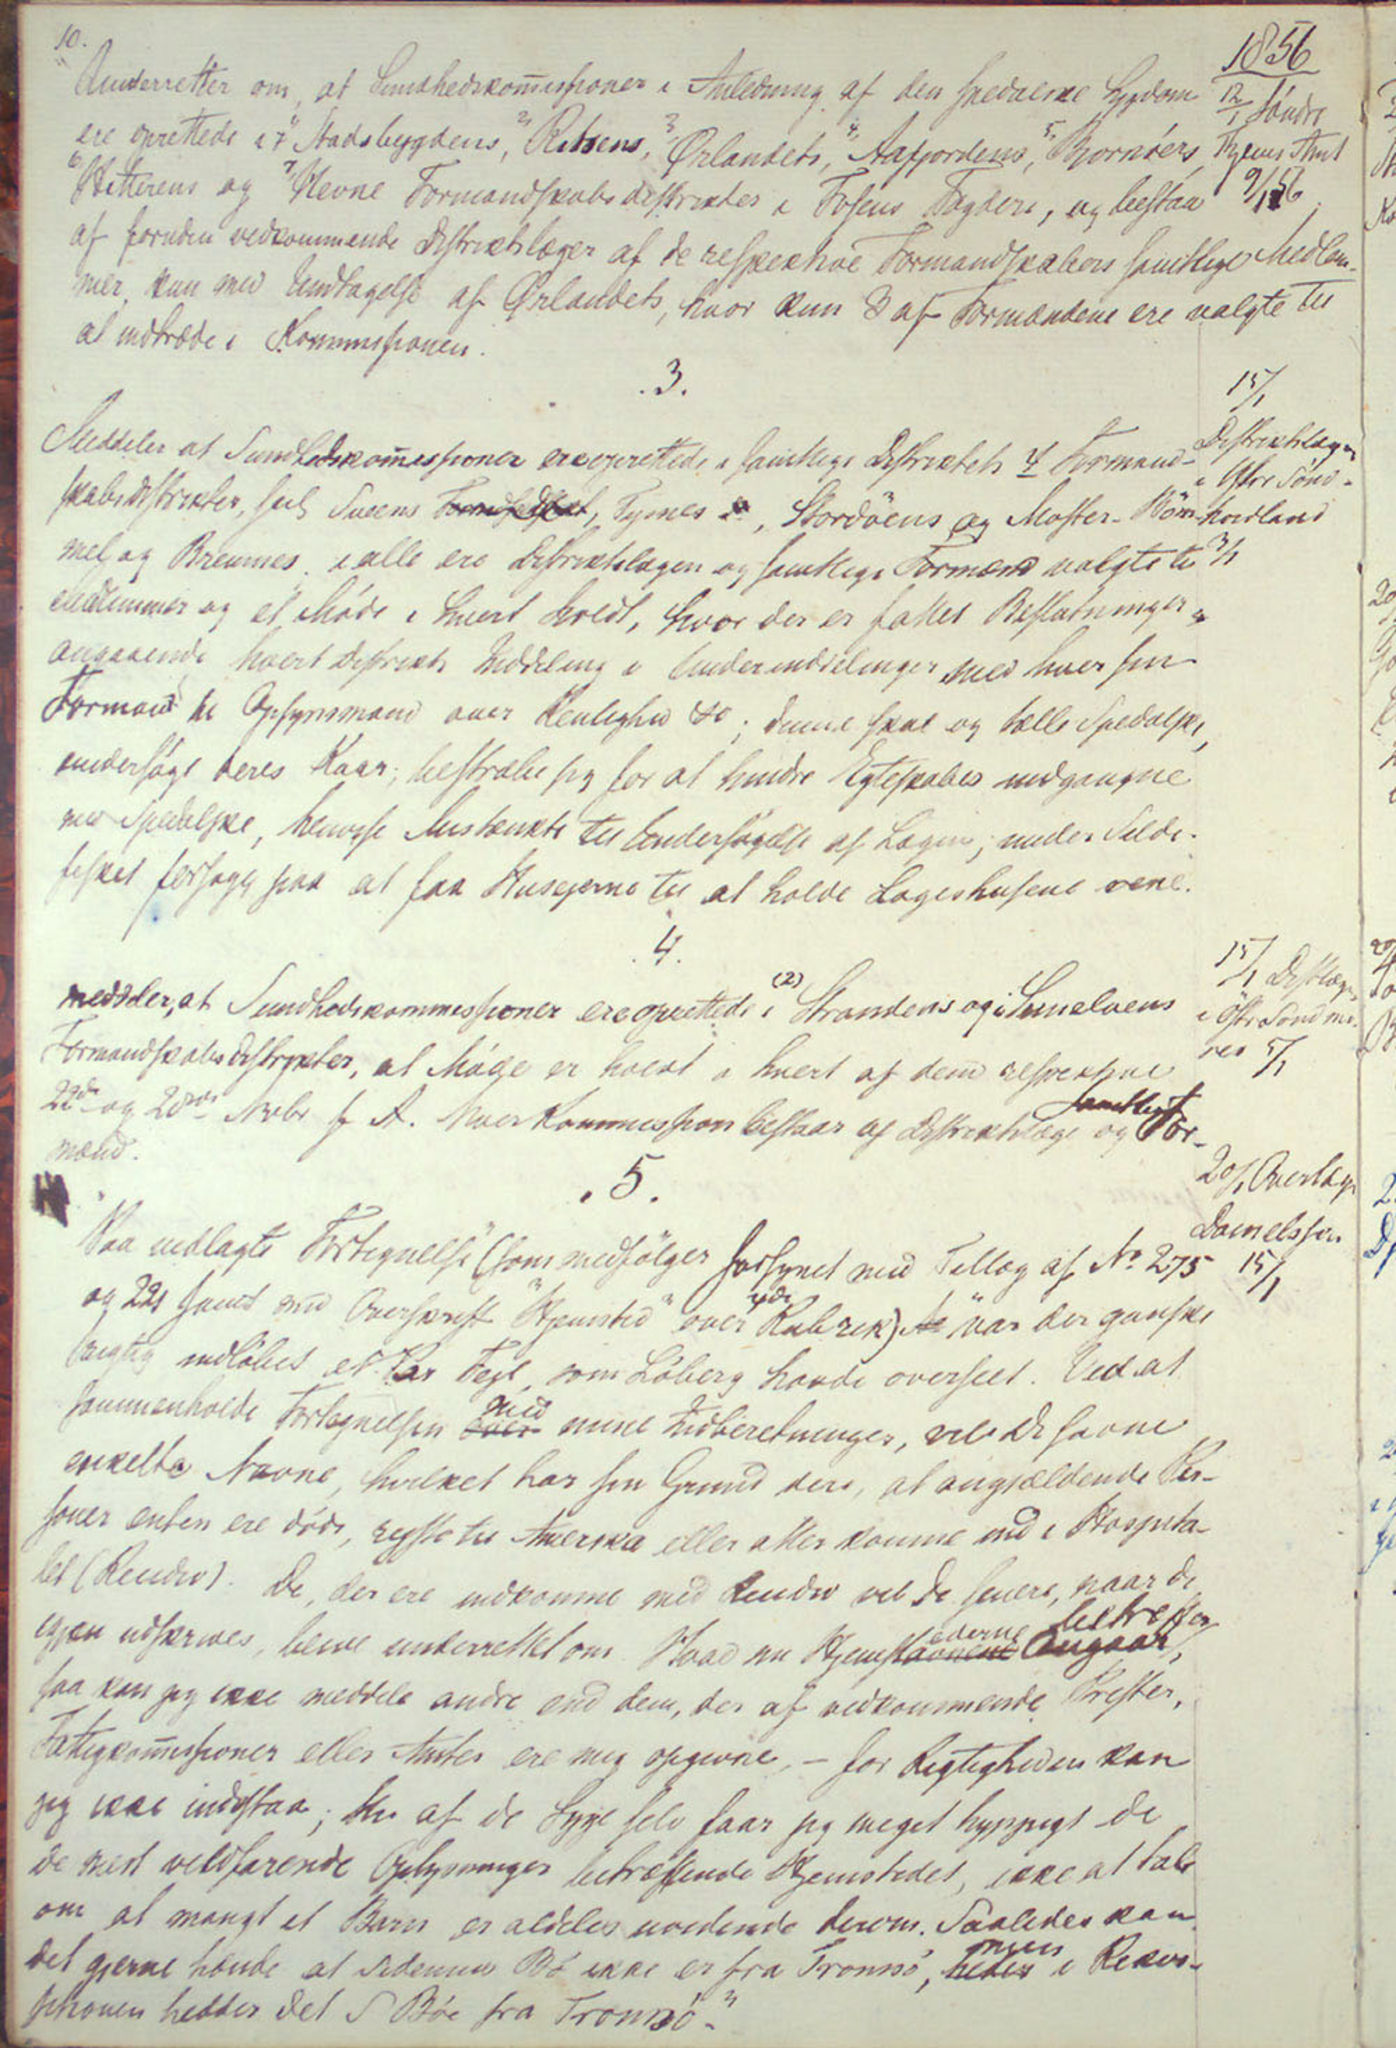 10.
1856
Underretter om, at Sundhedskom̅issioner i Anledning af den spedalske Sygdom
ere oprettede i 1) Stadsbygdens, 2) Rissens, 3) Ørlandets, 4) Aafjordens, 5) Bjørnørs,
6) Hitterens og 7) Hevne Formandskabsdistrikter i Fosens Fogderi, og bestaa
af foruden vedkommende Distriktslæger af de respektive Formandskabers samtlige Medlem-
mer, kun med Undtagelse af Ørlandets, hvor kun 3 af Formændene ere valgte til
at indtræde i Kommissionen.
12/1 Søndre
Thjems Amt
9/1 56
.3.
15/1
Distriktslægen
i Østre Sønd-
hordland
3/1
Meddeler at Sundhedskom̅issioner ere oprettede i samtlige Distriktets 4 Formand-
skabsdistrikter, Tysnes, Stordøens og Moster-Bøm-
mel og Bremnes. i alle ere Distriktslægen og samtlige Formænd valgte til
Medlemmer og et Møde i hvert holdt, hvor der er fattet Beslutninger
angaaende hvert Distrikts Inddeling i Underinddelinger med hver sin
Formand til Opsynsmand over Renlighed &c; denne skal og tælle Spedalske,
undersøge deres Kaar, bestræbe sig for at hindre Egteskabers indgangne
med Spedalske, henvise Mistænkte til Undersøgelse af Lægen; under Silde-
fisket forsøge paa at faa Huseierne til at holde Logishusene rene.
.4.
15/1 Distrlægen
i Østre Søndmø-
res 5/1
meddeler, at Sundhedskommissioner ere oprettede i (2) Strandens og i Sunelvens
Formandskabsdistrikter, at Møde er holdt i hvert af dem respektive
22de og 28de Novbr f. A. Hver Kommission bestaar af Distriktslæge og samtlige For-
mænd.
.5.
20/1 Overlæge
Danielssen
15/1
"Paa indlagte Fortegnelse (som medfølger forsynet med Tillæg af No 275
og 221 samt med Overskrift "Hjemsted" over 4de Rubrik) "var der ganske
rigtig indløbet et Par Feil, som Løberg havde overseet. Ved at
sammenholde Fortegnelsen over med mine Indberetninger, vil De savne
enkelte Navne, hvilket har sin Grund deri, at angjældende Per-
soner enten ere døde, reiste til Amerika eller atter komne ind i Hospita-
let (Recidiv). De, der ere indkomne med Recidiv vil De senere, naar de
igjen udskrives, blive underrettet om. Hvad nu Hjemstavnene ederne angaar betreffer,
saa kan jeg ikke meddele andre end dem, der af vedkommende Præster,
Fattigkom̅issioner eller Amter ere mig opgivne, – for Rigtigheden kan
jeg ikke indestaa; thi af de Syge selv faar jeg meget hyppigt de
de mest vildfarende Oplysninger betræffende Hjemstedet, ikke at tale
om at mangt et Barn er aldeles uvidende derom. Saaledes kan
det gjerne hænde at Bö ikke er fra Tromsö, men i Rekvi-
sitionen hedder det S Böe fra Tromsö."